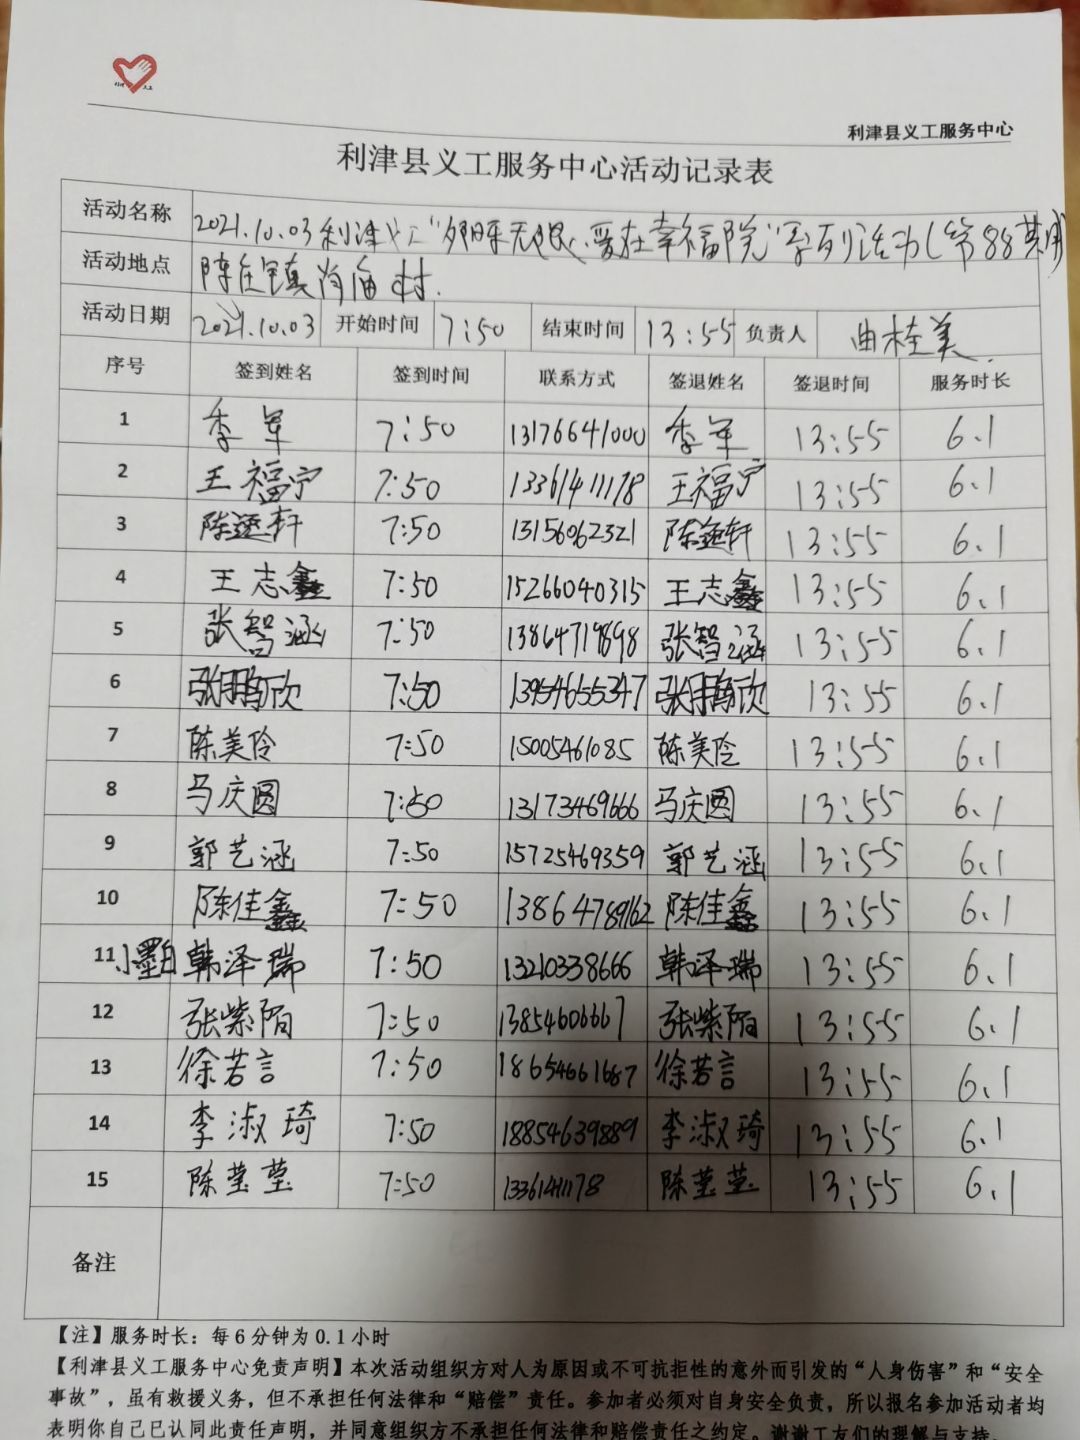 利津 义工
利津县义工服务中心
利津县义工服务中心活动记录表
活动名称 2021.10.03利津义工“夕阳无限，爱在幸福院”系列活动（第88期）
活动地点 陈庄镇 庙村.
活动日期 2021.10.03 开始时间 7:50 结束时间 13:55 负责人 曲桂美
序号 签到姓名 签到时间 联系方式 签退姓名 签退时间 服务时长
1 季军 7:50 13176641000 季军 13:55 6.1
2 王福宁 7:50 13361411178 王福宁 13:55 6.1
3 陈 轩 7:50 13156062321 陈 轩 13:55 6.1
4 王志鑫 7:50 15266040315 王志鑫 13:55 6.1
5 张智涵 7:50 13864719898 张智涵 13:55 6.1
6 张 欣 7:50 13954655347 张 欣 13:55 6.1
7 陈美伶 7:50 15005461085 陈美伶 13:55 6.1
8 马庆圆 7:50 13173469666 马庆圆 13:55 6.1
9 郭艺涵 7:50 15725469359 郭艺涵 13:55 6.1
10 陈佳鑫 7:50 13864789162 陈佳鑫 13:55 6.1
11 小墨白 韩泽瑞 7:50 13210338666 韩泽瑞 13:55 6.1
12 张紫陌 7:50 13854606667 张紫陌 13:55 6.1
13 徐若言 7:50 18654661687 徐若言 13:55 6.1
14 李淑琦 7:50 18854639889 李淑琦 13:55 6.1
15 陈莹莹 7:50 13361411178 陈莹莹 13:55 6.1
备注
【注】服务时长：每6分钟为0.1小时
【利津县义工服务中心免责声明】本次活动组织方对人为原因或不可抗拒性的意外而引发的“人身伤害”和“安全
事故”，虽有救援义务，但不承担任何法律和“赔偿”责任。参加者必须对自身安全负责，所以报名参加活动者均
表明你自己已认同此责任声明，并同意组织方不承担任何法律和赔偿责任之约定。谢谢工友们的理解与支持。